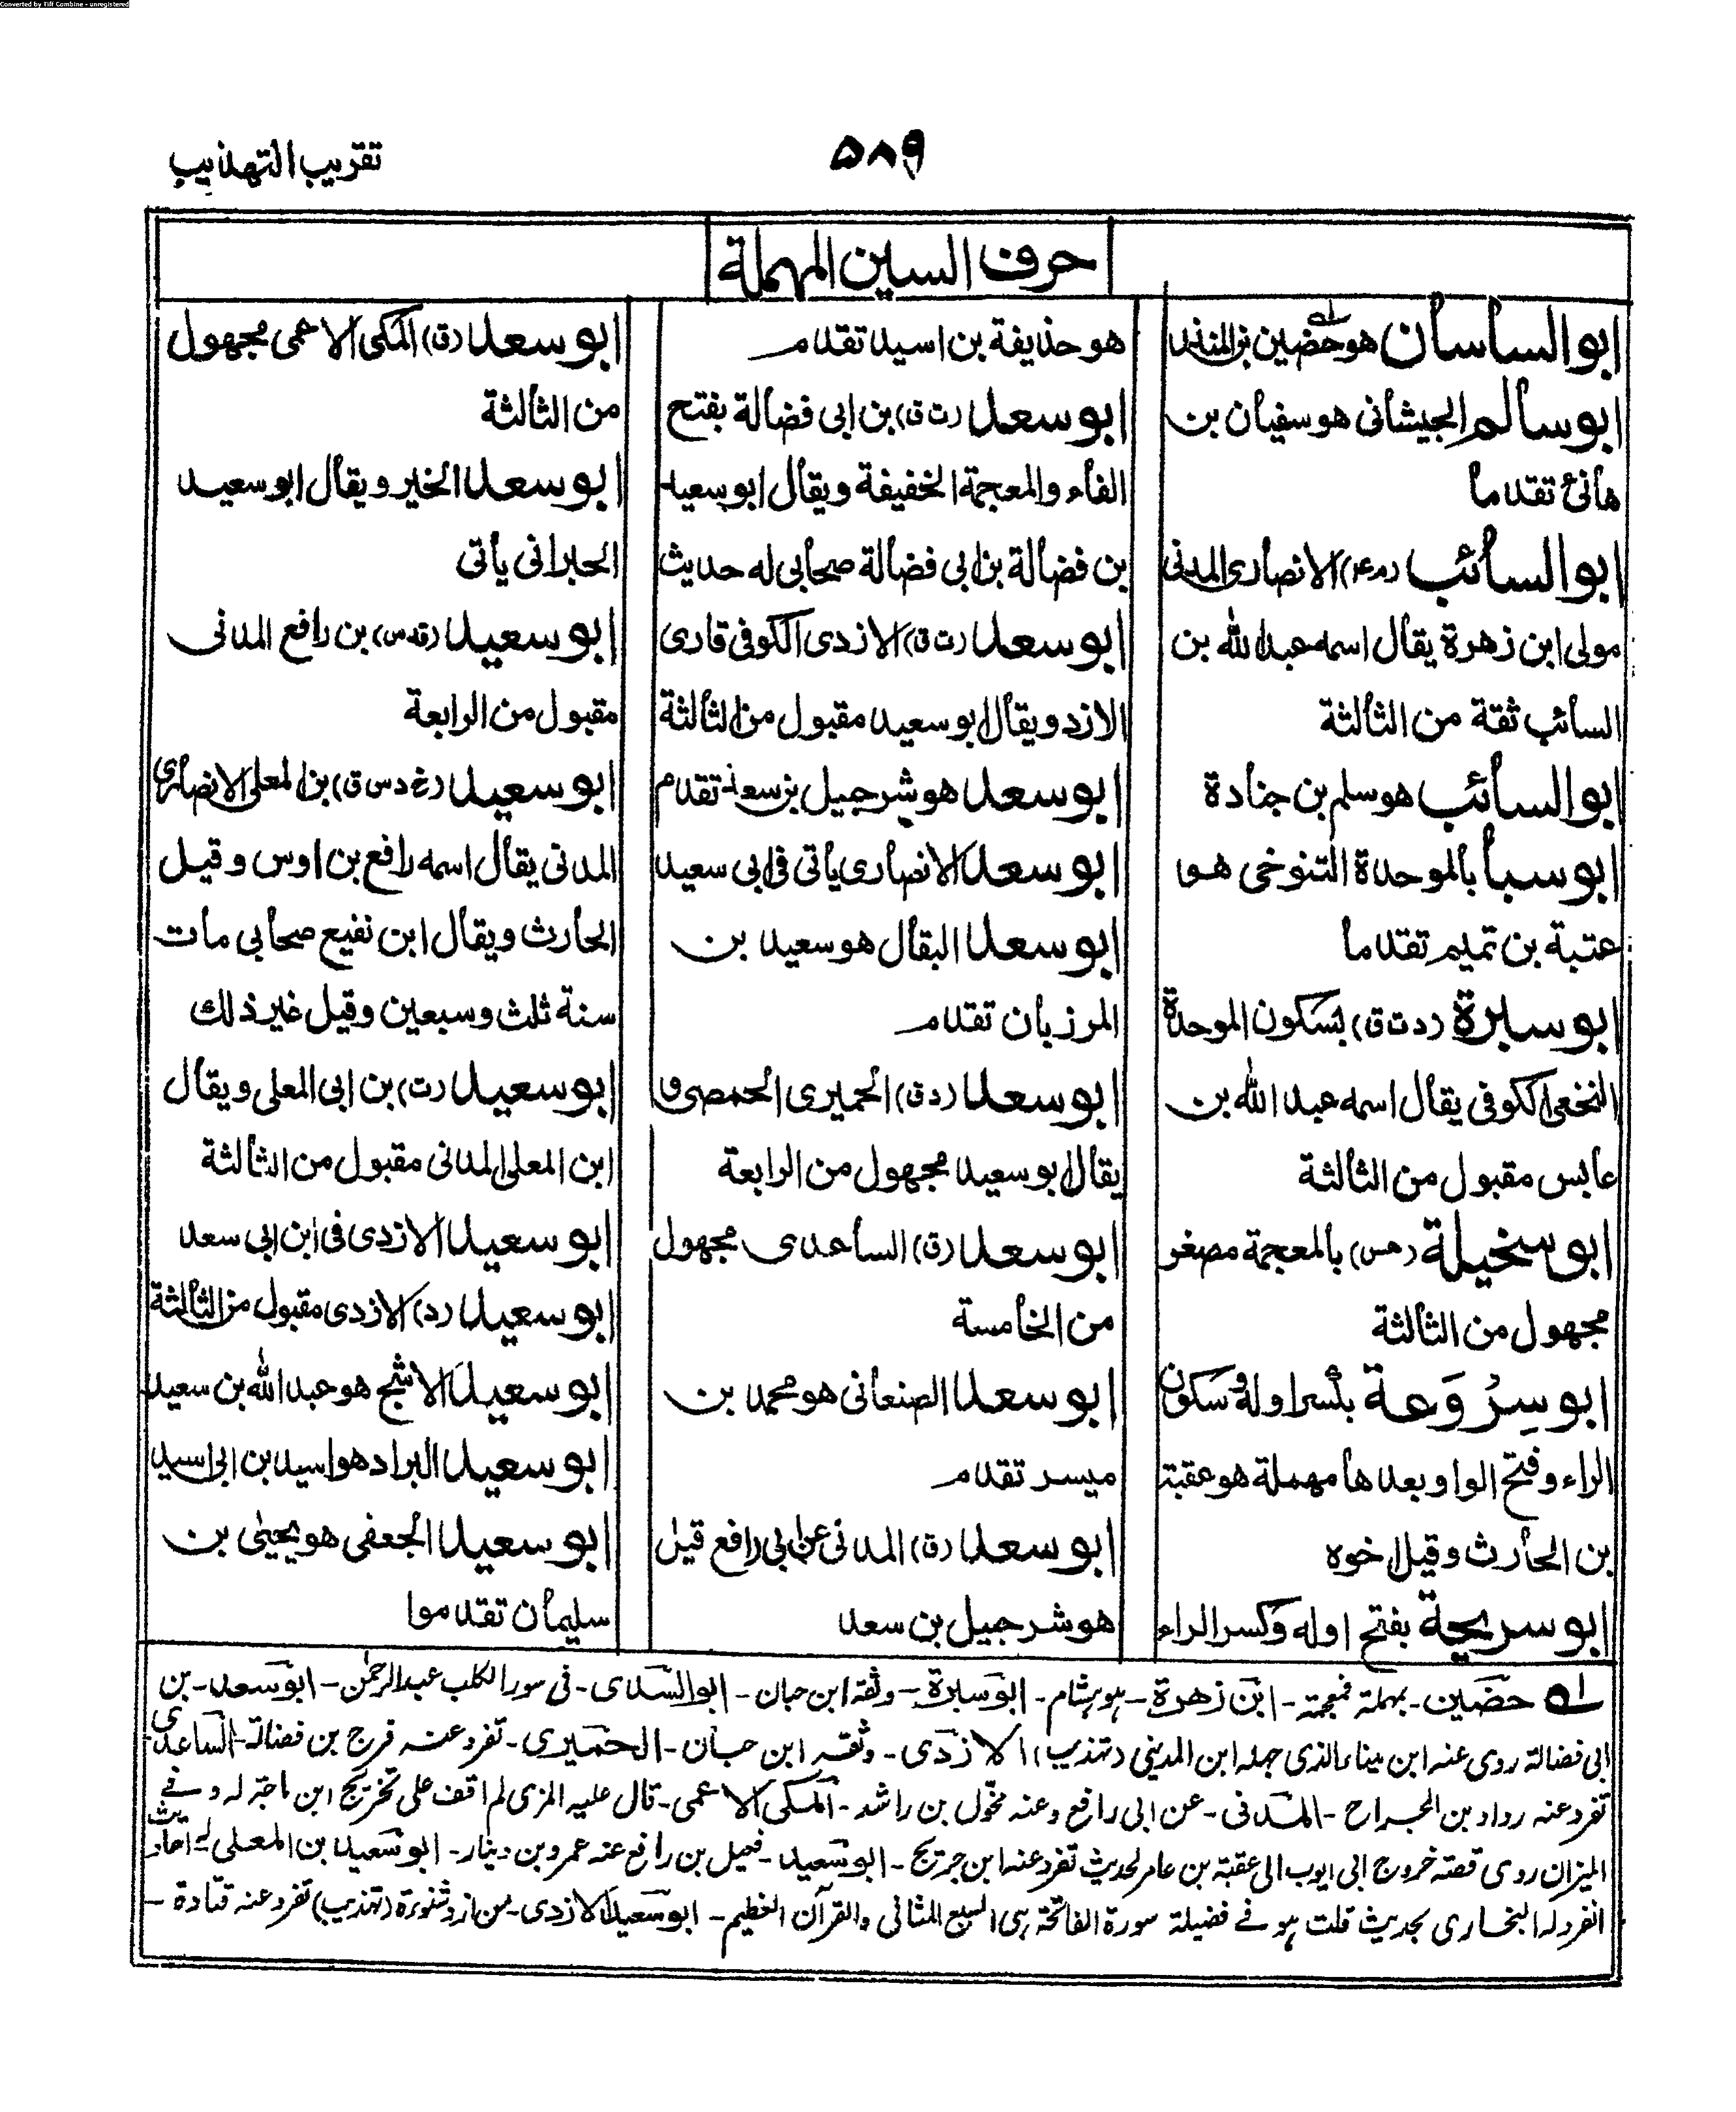 Converted by Tiff Combine - unregistered
تقريب التهذيب
۵۸۹
حرف السين المهملة
ابو الساسان هو حضين بن المنذر
ابو سالم الجيشانى هو سفيان بن
هانئ تقدما
ابو السائب (م ٤) الانصارى المدنى
مولى ابن زهرة يقال اسمه عبد الله بن
السائب ثقة من الثالثة
ابو السائب هو سلم بن جنادة
ابو سبأ بالموحدة التنوخى هو
عتبة بن تميم تقدما
ابو سبرة (د ت ق) بسكون الموحدة
النخعى الكوفى يقال اسمه عبد الله بن
عابس مقبول من الثالثة
ابو سخيلة (عس) بالمعجمة مصغر
مجهول من الثالثة
ابو سِرْوَعة بكسر اوله وسكون
الراء وفتح الواو بعدها مهملة هو عقبة
بن الحارث وقيل اخوه
ابو سريحة بفتح اوله وكسر الراء
هو حذيفة بن اسيد تقدم
ابو سعد (ت ق) بن ابى فضالة بفتح
الفاء والمعجمة الخفيفة ويقال ابو سعيد
بن فضالة بن ابى فضالة صحابى له حديث
ابو سعد (ت ق) الازدى الكوفى قارى
الازد ويقال ابو سعيد مقبول من الثالثة
ابو سعد هو شرحبيل بن سعد تقدم
ابو سعد الانصارى يأتى فى ابى سعيد
ابو سعد البقال هو سعيد بن
المرزبان تقدم
ابو سعد (د ق) الحميرى الحمصى و
يقال ابو سعيد مجهول من الرابعة
ابو سعد (ق) الساعدى مجهول
من الخامسة
ابو سعد الصنعانى هو محمد بن
ميسر تقدم
ابو سعد (ق) المدنى عن ابى رافع قيل
هو شرحبيل بن سعد
ابو سعد (ق) المكى الاعمى مجهول
من الثالثة
ابو سعد الخير ويقال ابو سعيد
الحبرانى يأتى
ابو سعيد (قد س) بن رافع المدنى
مقبول من الرابعة
ابو سعيد (خ د س ق) بن المعلى الانصارى
المدنى يقال اسمه رافع بن اوس وقيل
الحارث ويقال ابن نفيع صحابى مات
سنة ثلث وسبعين وقيل غير ذلك
ابو سعيد (ت) بن ابى المعلى ويقال
ابن المعلى المدنى مقبول من الثالثة
ابو سعيد الازدى فى ابن ابى سعد
ابو سعيد (د) الازدى مقبول من الثالثة
ابو سعيد الاشج هو عبد الله بن سعيد
ابو سعيد البراد هو اسيد بن ابى اسيد
ابو سعيد الجعفى هو يحيى بن
سليمان تقدموا
له حضين - بمهملة فمعجمة - ابن زهرة - هو هشام - ابو سبرة - وثقه ابن حبان - ابو السدى - فى سور الكلب عبد الرحمن - ابو سعد - بن
ابى فضالة روى عنه ابن ميناء الذى جهله ابن المدينى (تهذيب) الازدى - وثقه ابن حبان - الحميرى - تفرد عنه فرج بن فضالة - الساعدى
تفرد عنه رواد بن الجراح - المدنى - عن ابى رافع وعنه مخول بن راشد - المكى الاعمى - قال عليه المزى لم اقف على تخريج ابن ماجة له و فے
الميزان روى قصة خروج ابى ايوب الى عقبة بن عامر لحديث تفرد عنه ابن جريج - ابو سعيد - بن رافع عنه عمرو بن دينار - ابو سعيد بن المعلى له احاديث
انفرد له البخارى بحديث قلت هو فے فضيلة سورة الفاتحة هى السبع المثانى والقرآن العظيم - ابو سعيد الازدى - من ازد شنوءة (تهذيب) تفرد عنه قتادة -